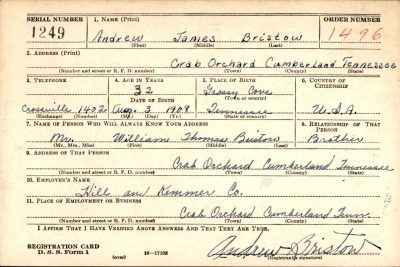 SERIAL NUMBER 1. NAME (Print) ORDER NUMBER
1249 Andrew James Bristow 1496
(First) (Middle) (Last)
2. ADDRESS (Print)
Crab Orchard Cumberland Tennessee
(Number and street or R. F. D. number) (Town) (County) (State)
3. TELEPHONE 4. AGE IN YEARS 5. PLACE OF BIRTH 6. COUNTRY OF CITIZENSHIP
32 Grassy Cove
DATE OF BIRTH (Town or county)
Crossville 1402 Aug. 3 1908 Tennessee U.S.A.
(Exchange) (Number) (Mo.) (Day) (Yr.) (State or country)
7. NAME OF PERSON WHO WILL ALWAYS KNOW YOUR ADDRESS 8. RELATIONSHIP OF THAT PERSON
Mr. William Thomas Bristow Brother
(Mr., Mrs., Miss) (First) (Middle) (Last)
9. ADDRESS OF THAT PERSON
Crab Orchard Cumberland Tennessee
(Number and street or R. F. D. number) (Town) (County) (State)
10. EMPLOYER'S NAME
Hill an Kemmer Co.
11. PLACE OF EMPLOYMENT OR BUSINESS
Crab Orchard Cumberland Tenn.
(Number and street or R. F. D. number) (Town) (County) (State)
I AFFIRM THAT I HAVE VERIFIED ABOVE ANSWERS AND THAT THEY ARE TRUE.
Andrew Bristow
REGISTRATION CARD
D. S. S. Form 1 (over) 16—17105 (Registrant's signature)